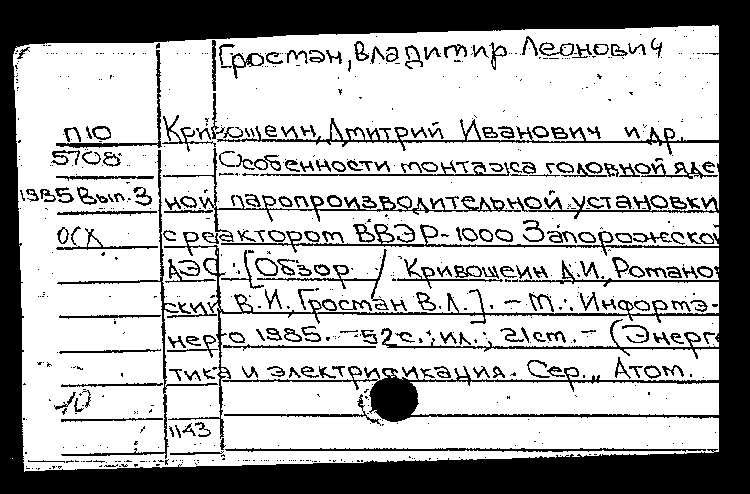 Гростан, Владимир Леонович
П10 Кривошеин, Дмитрий Иванович и др.
5708 Особенности монтажа головной яде
1985 Вып. 3 ной паропроизводительной установки
ОСХ с реактором ВВЭР-1000 Запорожской
АЭС : [Обзор / Кривошеин Д.И, Романов
ский В.И, Гростан В.Л.]. – М.: Информэ-
нерго, 1985. – 52 с.; ил.; 21 см. – (Энерге
тика и электрификация. Сер. „ Атом.
10
1143